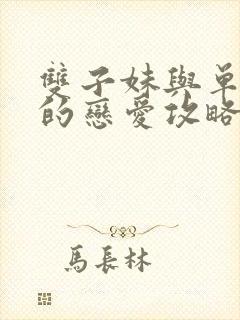 雙子妹與單
的戀愛攻略
馬長林